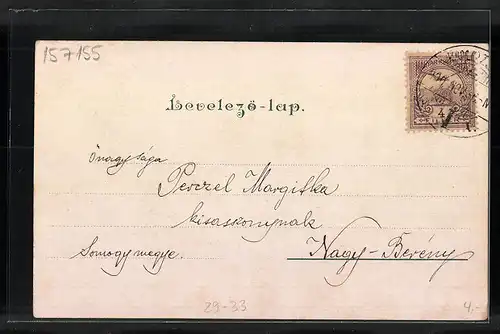 157155
Levelező-lap.
Őnagysága
Perczel Margitka
kisasszonynak
Somogy megye.
Nagy-Berény
29-33
4.-